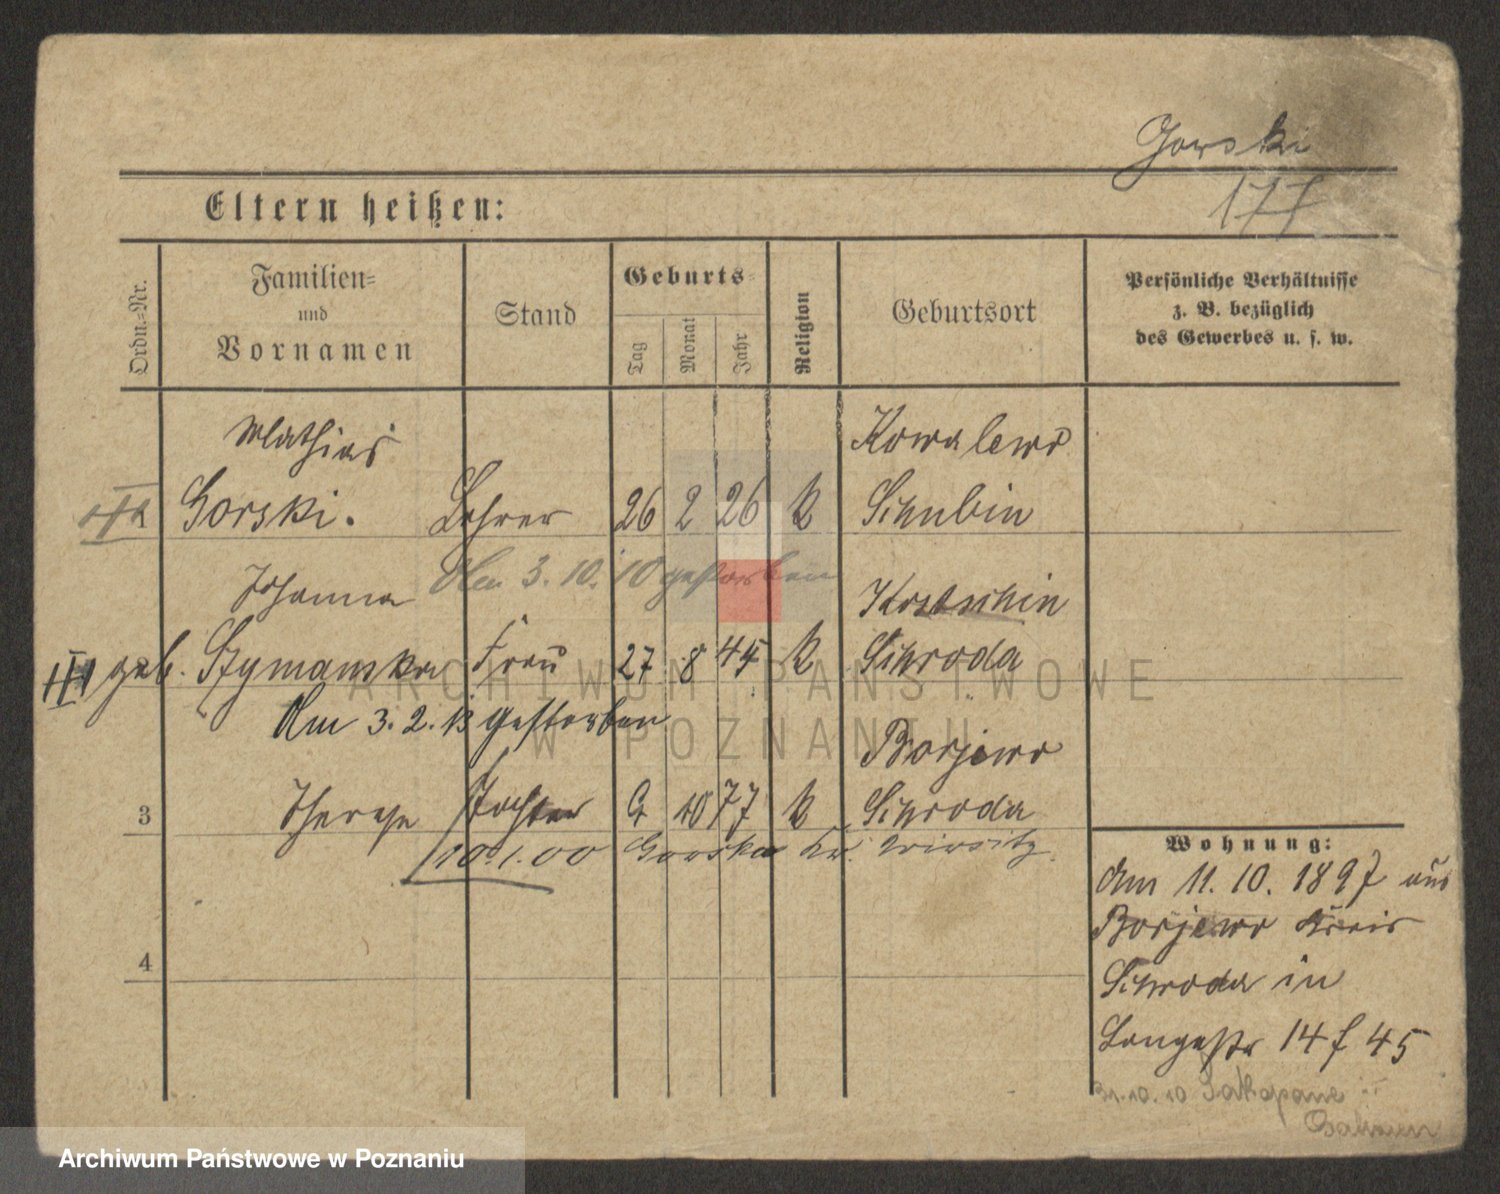 Gorski
177
Eltern heißen:
Ordn.-Nr.
Familien-
und
Vornamen
Stand
Geburts-
Tag
Monat
Jahr
Religion
Geburtsort
Persönliche Verhältnisse
z. B. bezüglich
des Gewerbes u. s. w.
Mathias Kowalewo
Gorski. Lehrer 26 2 26 k Schubin
Am 3. 10. 10 gestorben
Johanna Kostschin
geb. Szymanska Frau 27 8 45 k Schroda
Am 3. 2. 13 gestorben
Borzewo
3 Therese Tochter 9 10 77 k Schroda
10.1.00 Gorska Kr. Wirsitz
4
Wohnung:
Am 11. 10. 1897 aus
Borzewo Kreis
Schroda in
Langestr 14 f 45
31.10.10
ARCHIWUM PAŃSTWOWE
W POZNANIU
Archiwum Państwowe w Poznaniu